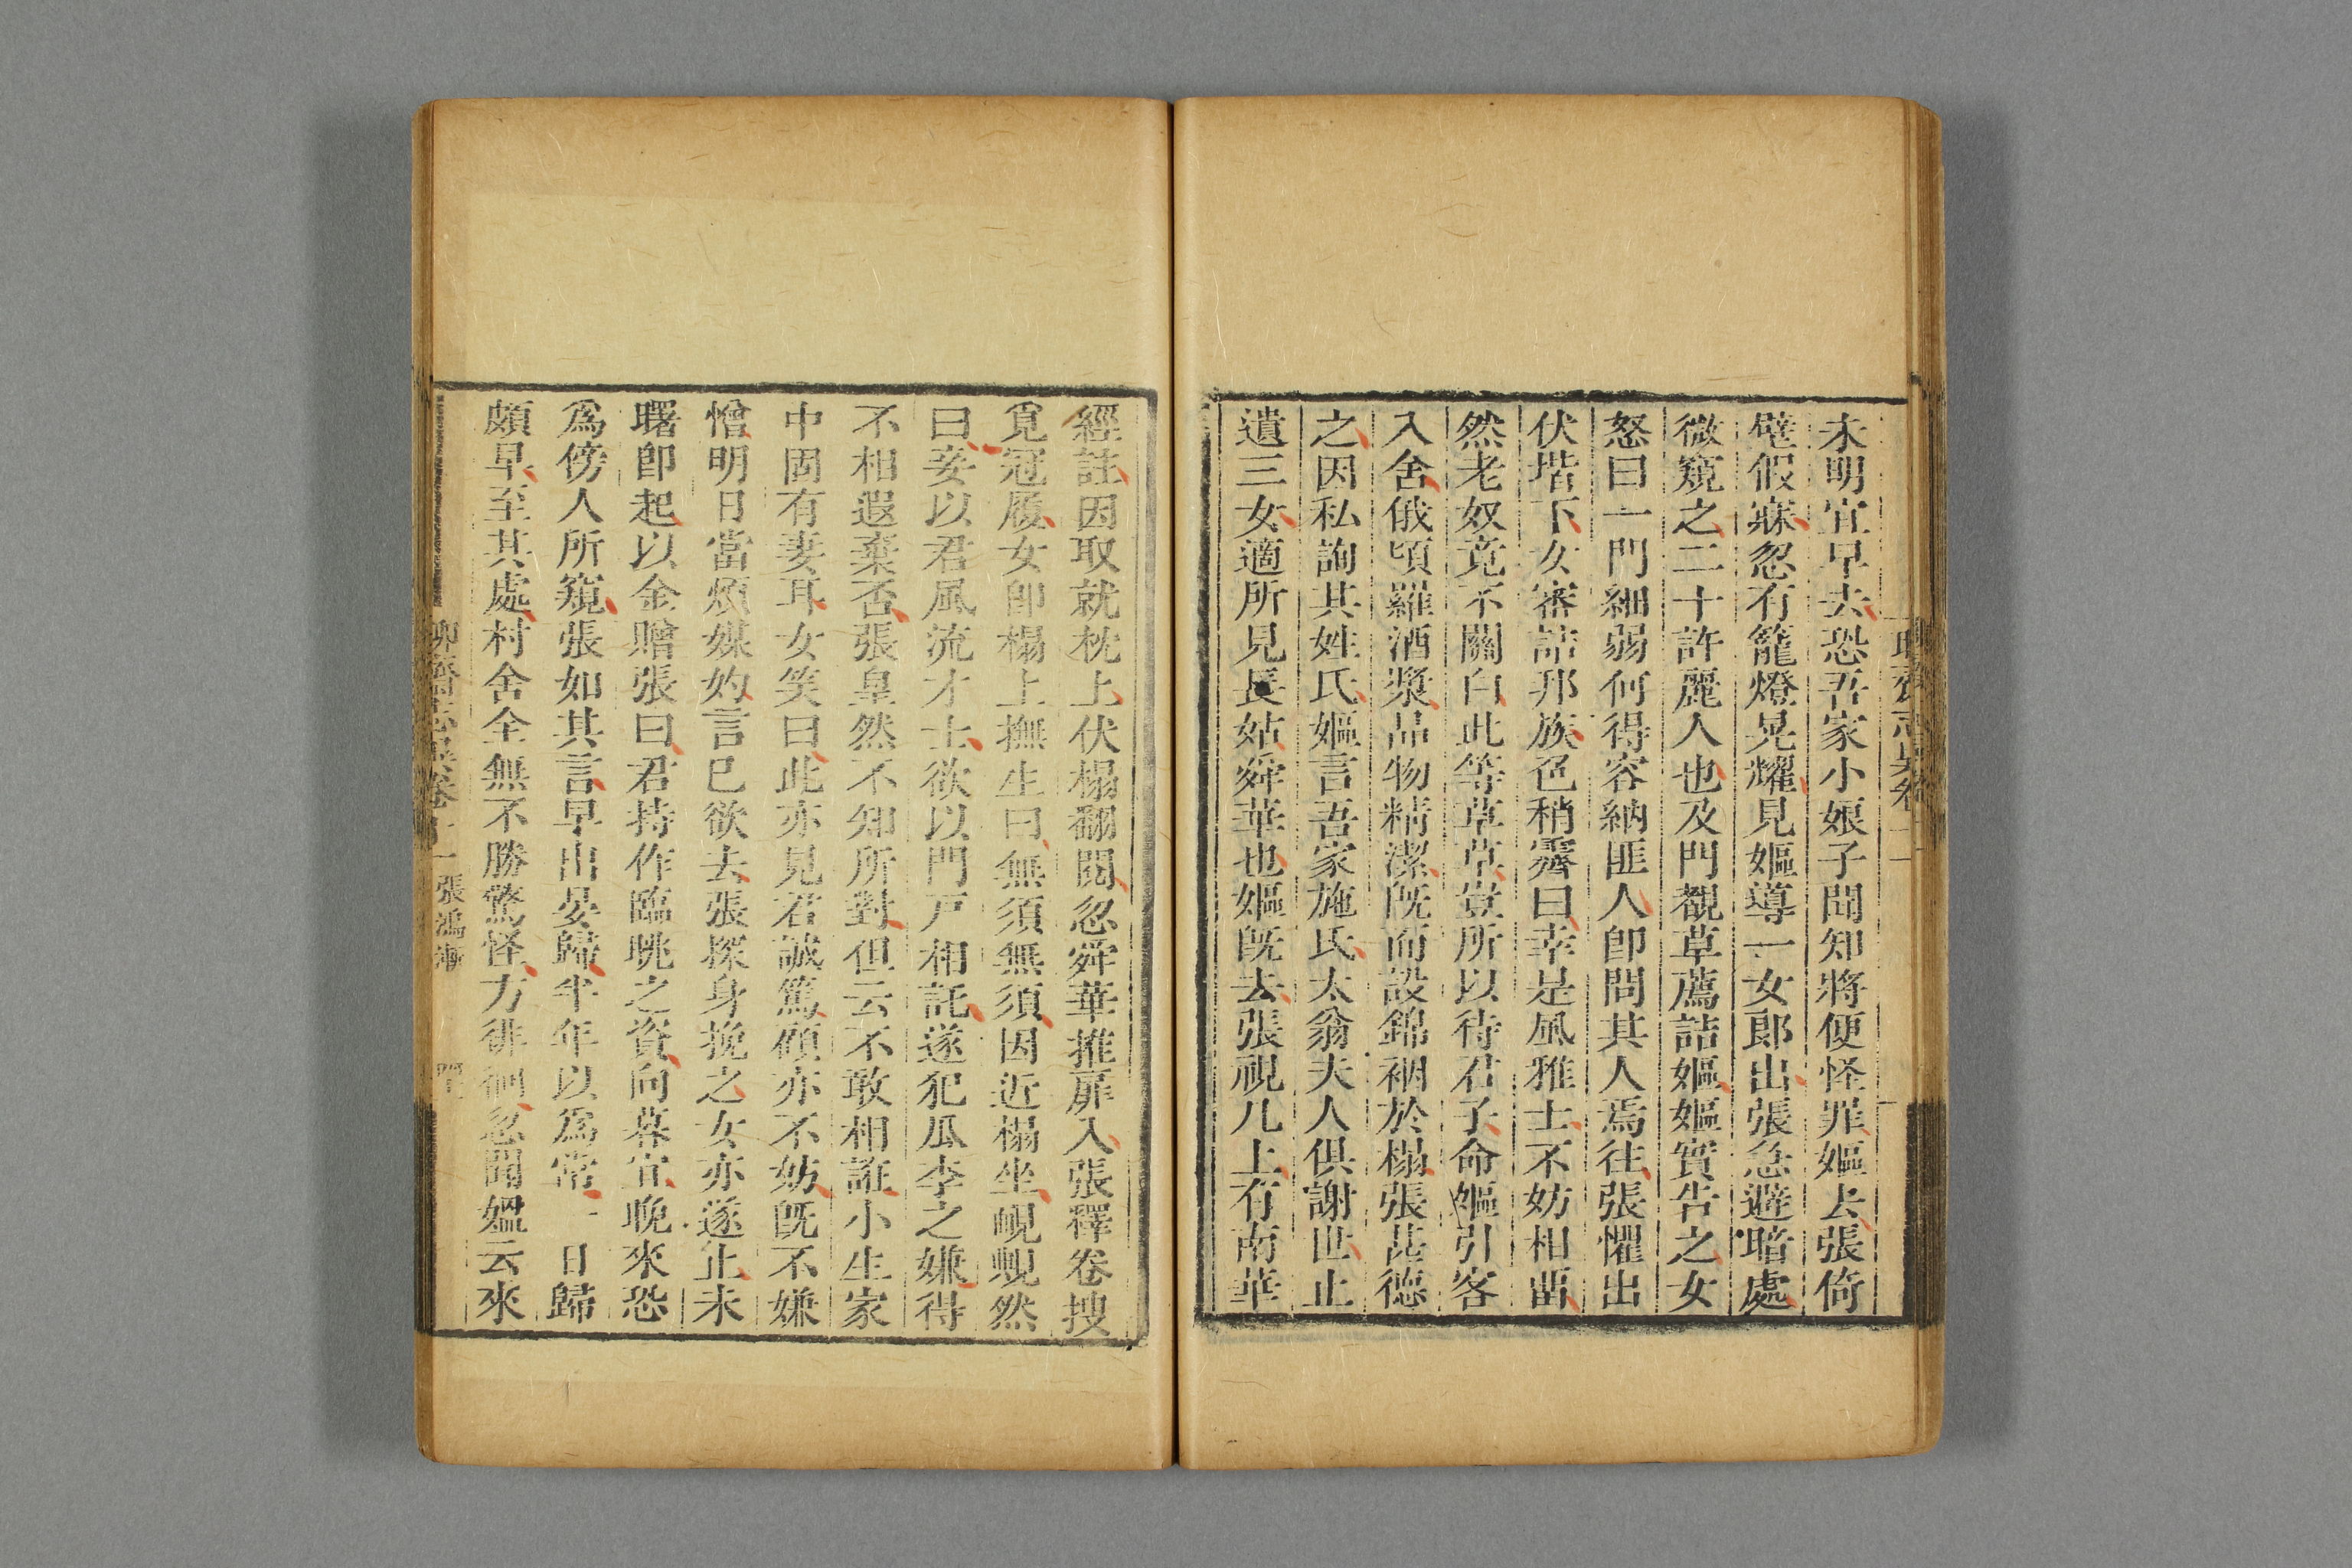 未明宜早去恐吾家小娘子聞知將便怪罪嫗去張倚
壁假寐忽有籠燈晃耀見嫗導一女郎出張急避暗處
微窺之二十許麗人也及門覩草薦詰嫗嫗實告之女
怒曰一門細弱何得容納匪人卽問其人焉往張懼出
伏堦下女審詰邦族色稍霽曰幸是風雅士不妨相畱
然老奴竟不關白此等草草豈所以待君子命嫗引客
入舍俄頃羅酒漿品物精潔旣而設錦裀於榻張甚德
之因私詢其姓氏嫗言吾家施氏太翁夫人俱謝世止
遺三女適所見長姑舜華也嫗旣去張視几上有南華
經註因取就枕上伏榻翻閱忽舜華推扉入張釋卷搜
覓冠履女卽榻上撫生曰無須無須因近榻坐䩄覥然
曰妾以君風流才士欲以門戸相託遂犯瓜李之嫌得
不相遐棄否張皇然不知所對但云不敢相誑小生家
中固有妻耳女笑曰此亦見君誠篤顧亦不妨旣不嫌
憎明日當煩媒妁言已欲去張探身挽之女亦遂止未
曙卽起以金贈張曰君持作臨眺之資向暮宜晚來恐
爲傍人所窺張如其言早出晏歸半年以爲常一日歸
頗早至其處村舍全無不勝驚怪方徘徊忽聞媼云來
聊齋志異卷十一 張鴻漸